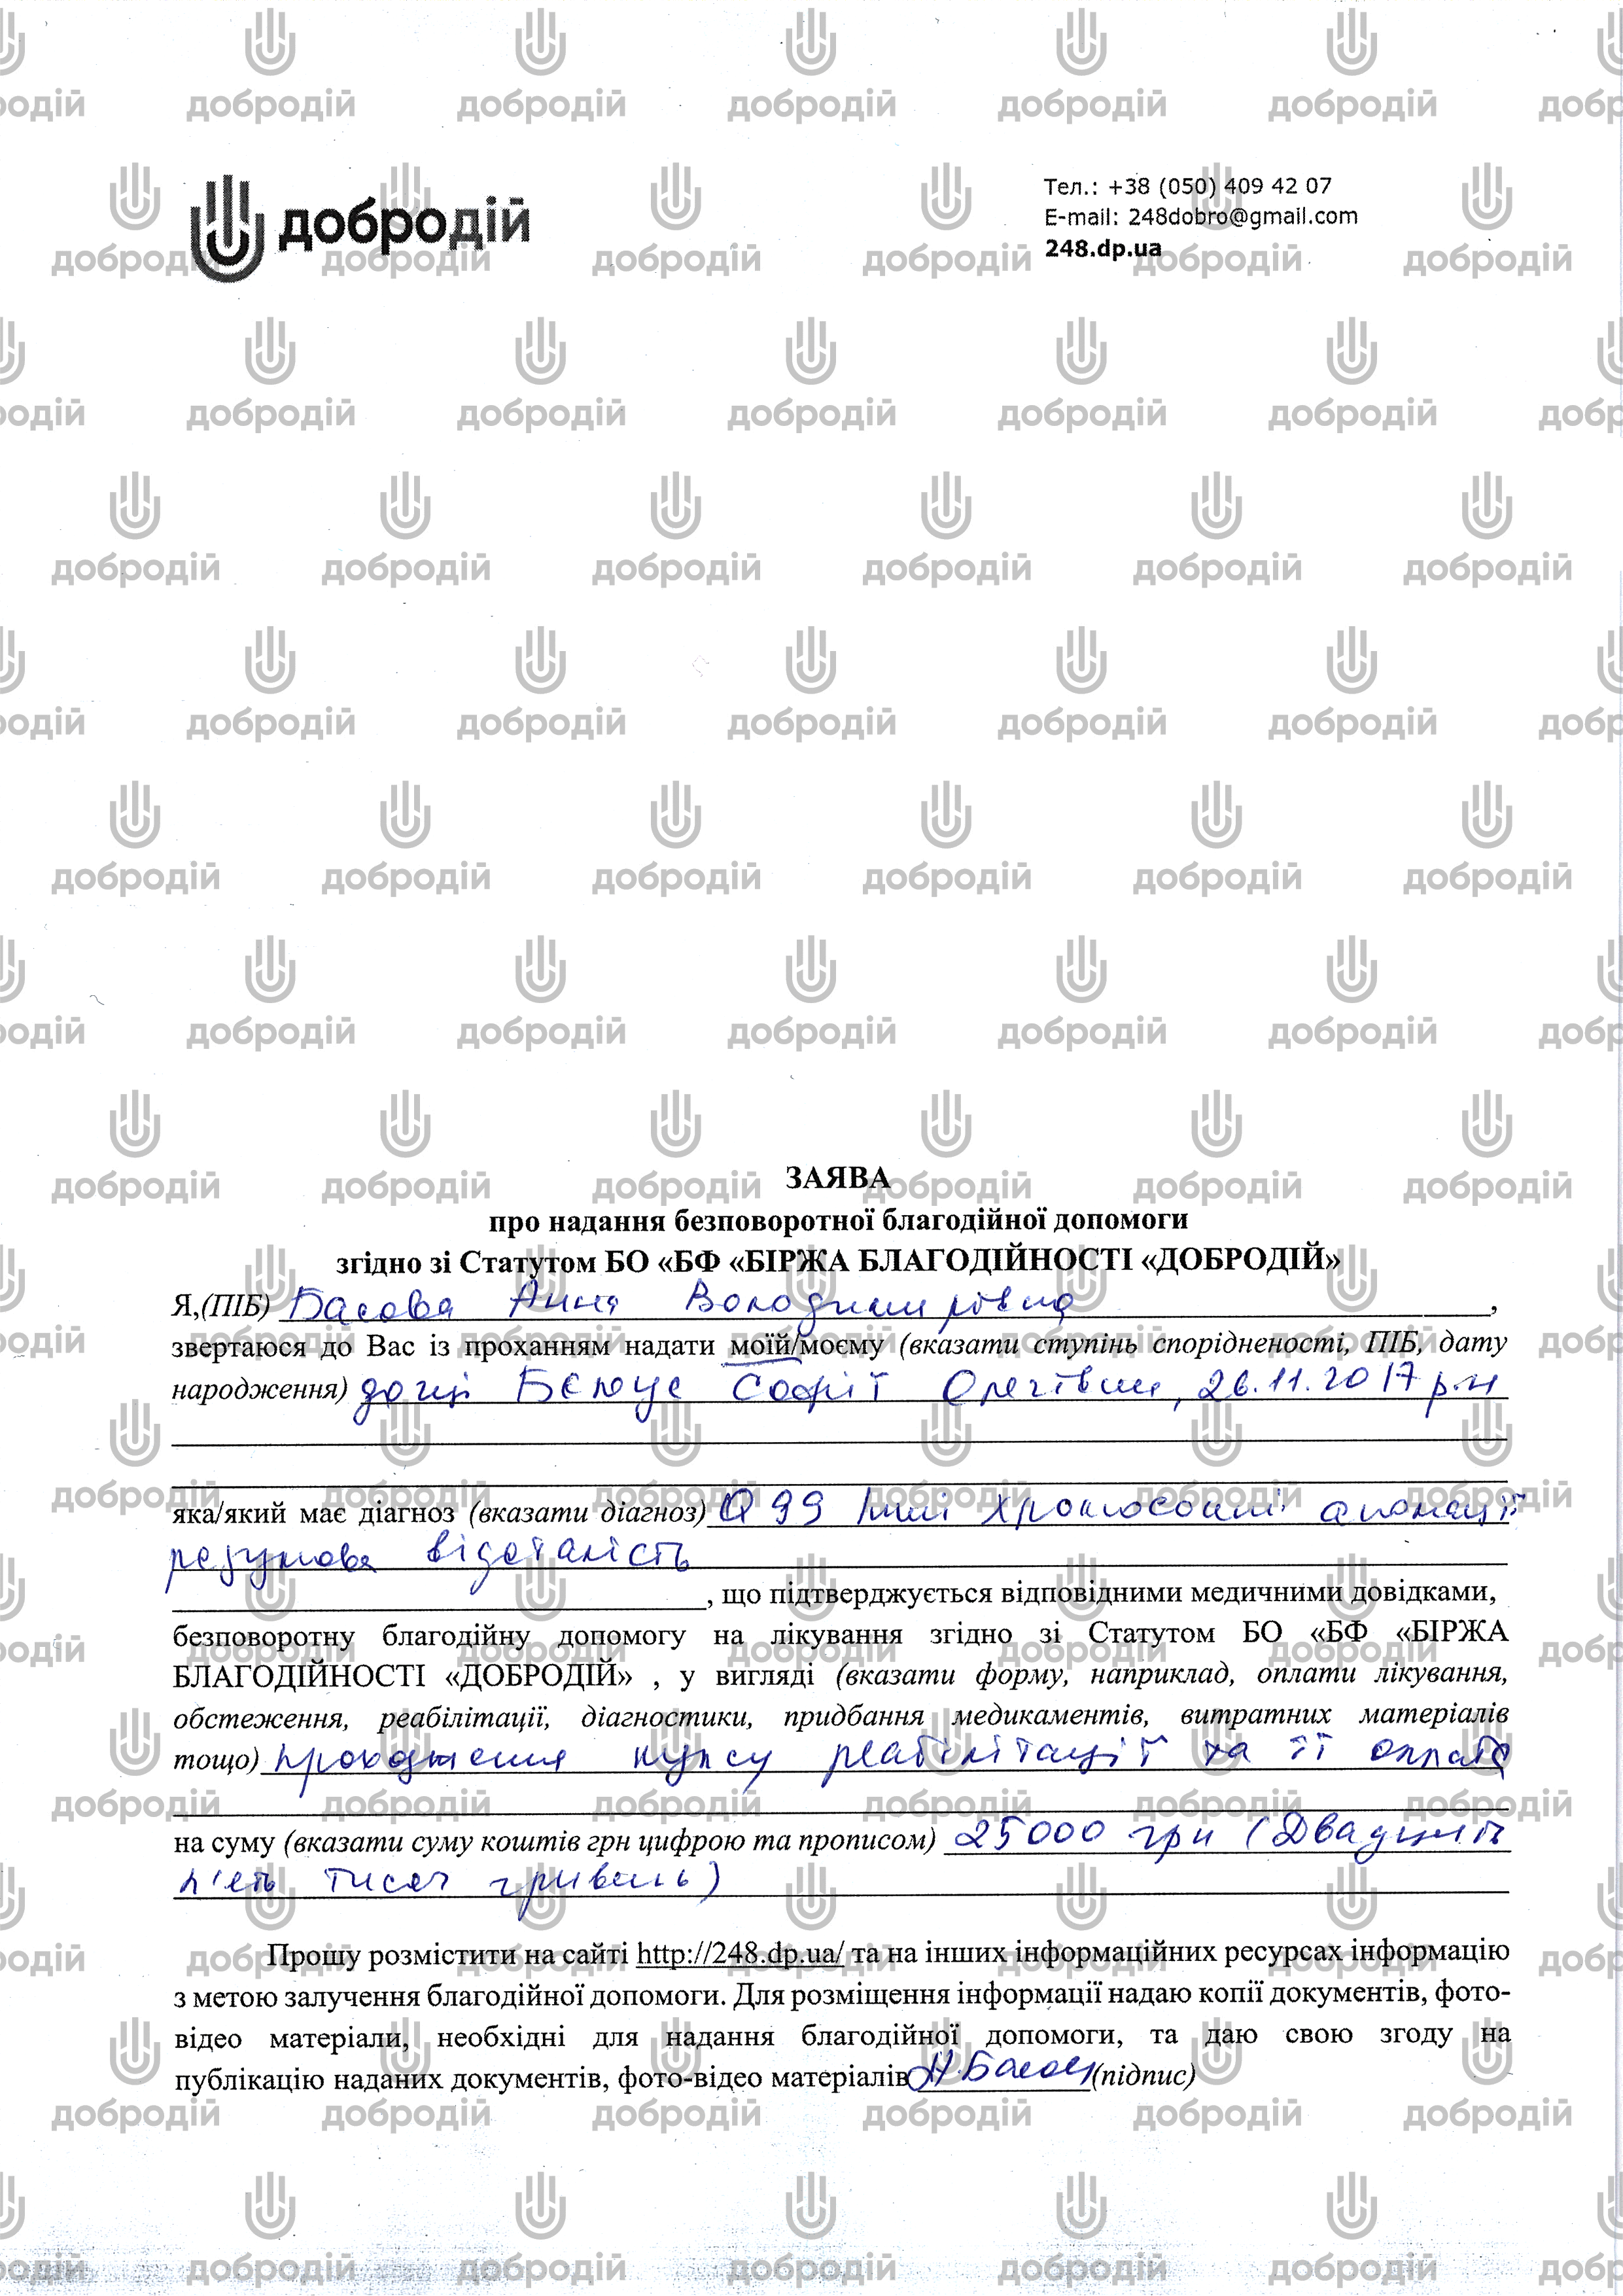 добродій
Тел.: +38 (050) 409 42 07
E-mail: 248dobro@gmail.com
248.dp.ua
ЗАЯВА
про надання безповоротної благодійної допомоги
згідно зі Статутом БО «БФ «БІРЖА БЛАГОДІЙНОСТІ «ДОБРОДІЙ»
Я,(ПІБ) Басова Анна Володимирівна,
звертаюся до Вас із проханням надати моїй/моєму (вказати ступінь спорідненості, ПІБ, дату
народження) доці Бєлоус Софії Олегівни, 26.11.2017 р.н
яка/який має діагноз (вказати діагноз) Q 99 Інші хромосомні аномації
розумова відсталість
, що підтверджується відповідними медичними довідками,
безповоротну благодійну допомогу на лікування згідно зі Статутом БО «БФ «БІРЖА
БЛАГОДІЙНОСТІ «ДОБРОДІЙ» , у вигляді (вказати форму, наприклад, оплати лікування,
обстеження, реабілітації, діагностики, придбання медикаментів, витратних матеріалів
тощо) проходження курсу реабілітації та її оплата
на суму (вказати суму коштів грн цифрою та прописом) 25000 грн (Двадцять
п'ять тисяч гривень)
Прошу розмістити на сайті http://248.dp.ua/ та на інших інформаційних ресурсах інформацію
з метою залучення благодійної допомоги. Для розміщення інформації надаю копії документів, фото-
відео матеріали, необхідні для надання благодійної допомоги, та даю свою згоду на
публікацію наданих документів, фото-відео матеріалів А.Басов (підпис)